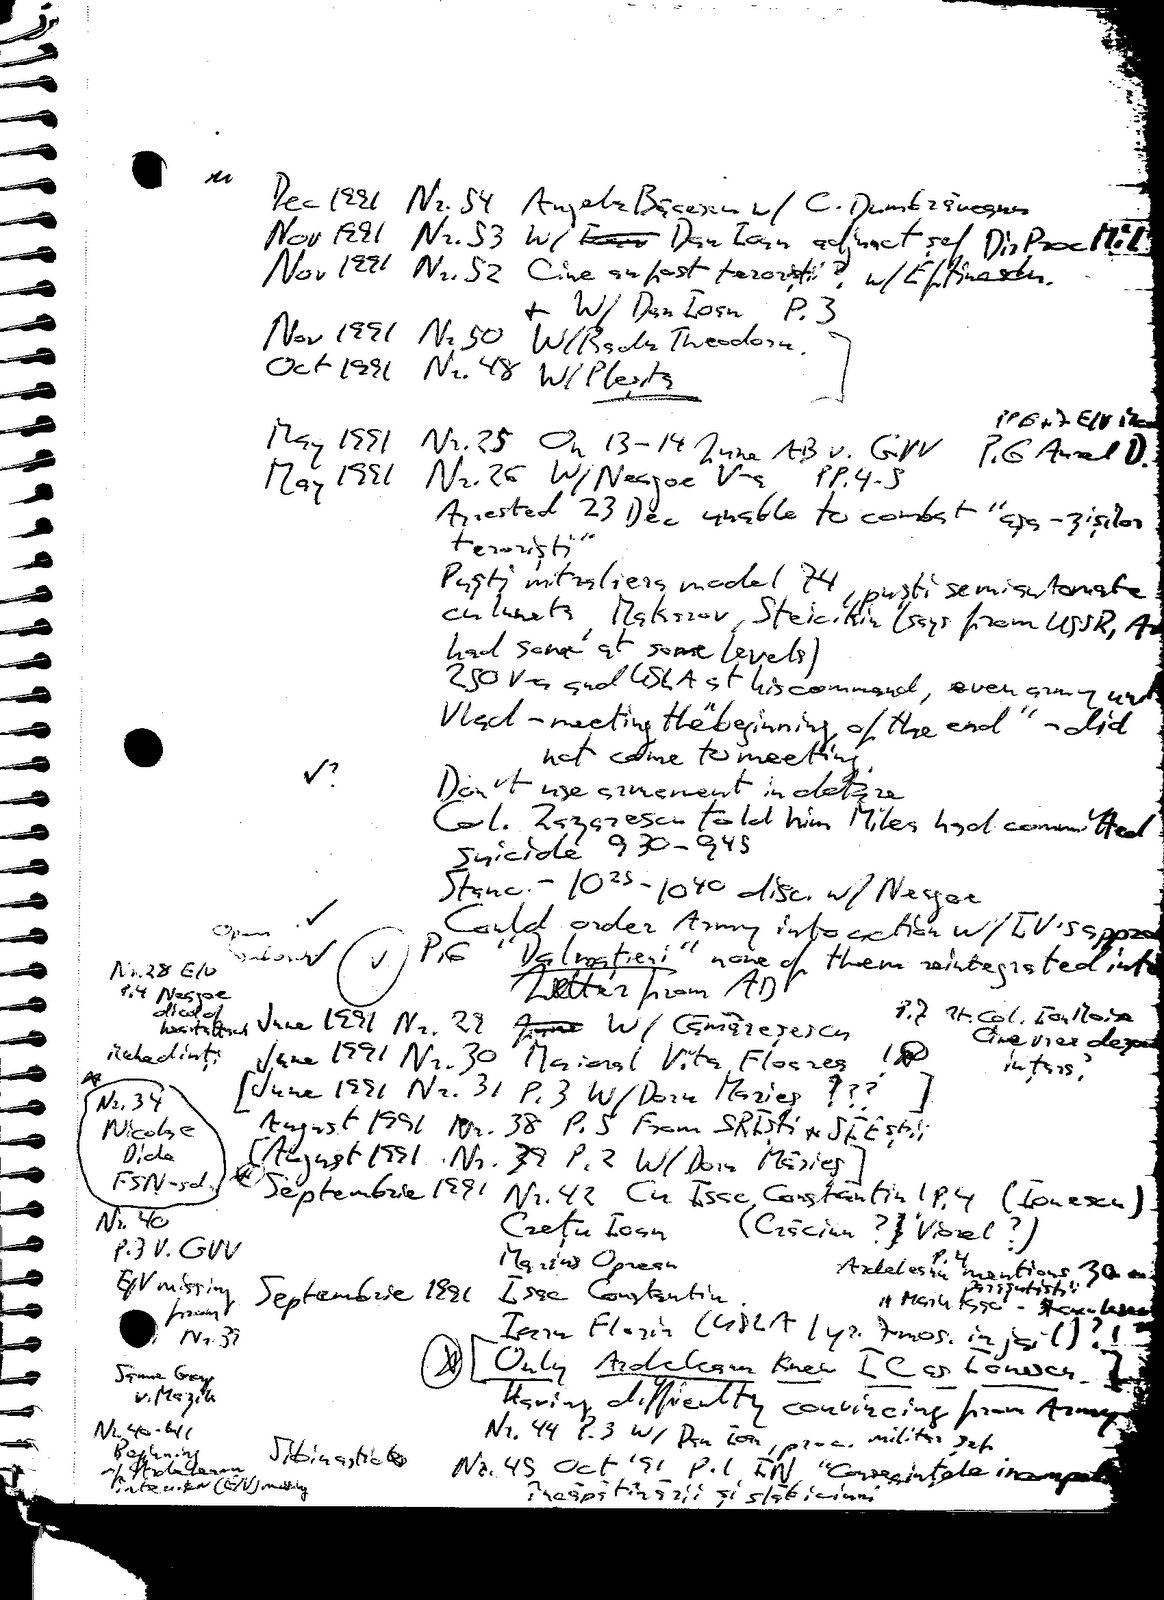 Dec 1991 Nr. 54 Angela Băcescu w/ C. Dumitrăneanu
Nov 1991 Nr. 53 W/ Dan Ioan adjunct șef Dir Proc Mil
Nov 1991 Nr. 52 Cine au fost teroriștii? w/ Eftinescu.
+ W/ Dan Ioan P. 3
Nov 1991 Nr 50 W/ Radu Theodoru.
Oct 1991 Nr. 48 W/ Pleșița
PP 6+7 E/V
May 1991 Nr. 25 On 13-14 June AB v. GVV P.6 Aurel D.
May 1991 Nr. 26 W/ Neagoe V-a PP. 4-5
Arrested 23 Dec unable to combat "așa-zișilor
teroriști"
Puști mitraliera model 74, puști semiautomate
cu luneta, Makarov, Steicikin (says from USSR,
had some at some levels)
250 V-a and USLA at his command, even army
Vlad - meeting the "beginning of the end" - did
not come to meeting.
✓?
Don't use armament in dotare
Col. told him Milea had committed
suicide 930-945
Stanc. - 1025-1040 disc. w/ Neagoe
✓ Could order Army into action w/ IV's
Open
✓ P.6 "Dalmatieni" none of them reintegrated
Letter from AD
Nr. 28 E/V
P.4 Neagoe
died of
heart attack
June 1991 Nr. 29 W/ Cămărășescu P. 7 Lt. Col. Ion
Cine vrea
în țară?
June 1991 Nr. 30 Vița Floarea !
[June 1991 Nr. 31 P. 3 W/ Doru Marieș ???]
Nr. 34
Nicolae
Dide
FSN-
August 1991 Nr. 38 P. 5 From SRIști + SIEștii
[August 1991 Nr. 39 P. 2 W/ Doru Mărieș]
Septembrie 1991 Nr. 42 Cu Isac Constantin P. 4 (Ionescu)
Crețu Ioan (Crăciun? Viorel?)
Marius Oprean
Nr. 40
P. 3 V. GVV
E/V missing
from
Nr. 39
Ardelean mentions 30
P. 4
parașutiști
Septembrie 1991 Isac Constantin
Florin (USLA 1 yr. 7 mos. in jail)?!
[Only Ardelean knew IC as Ionescu.]
Having difficulty convincing from Army
Same Guy
v. Mazilu
Nr. 44 P. 3 W/ Dan Ion, proc. militar șef
Nr. 40-41
Beginning
of Ardeleanu
interview (E/V) missing
Nr. 45 Oct '91 P. 1, EN, "Consecințele
încăpățînării și slăbiciunii